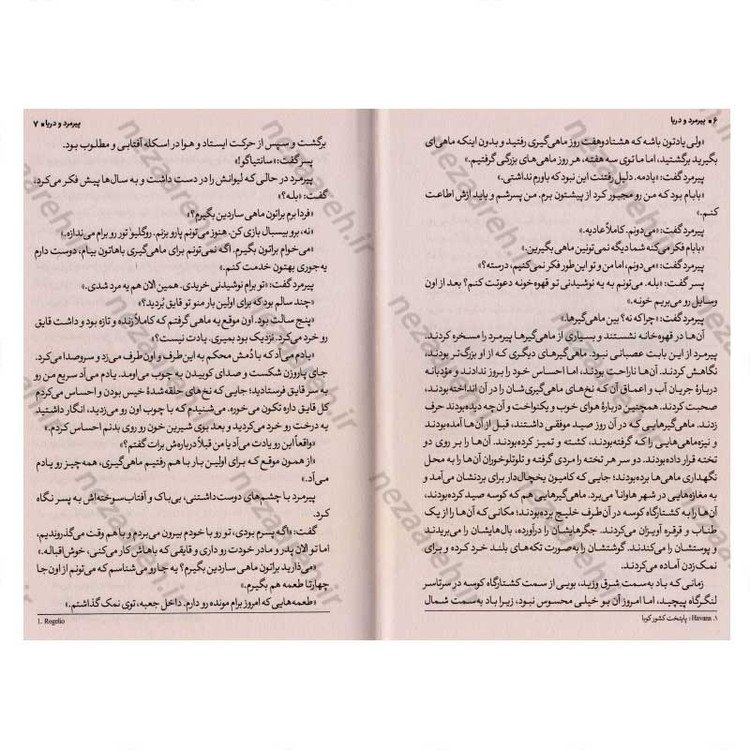 ۶ ▪ پیرمرد و دریا
«ولی یادتون باشه که هشتاد‌و‌هفت روز ماهی‌گیری رفتید و بدون اینکه ماهی‌ای
بگیرید برگشتید، اما ما توی سه هفته، هر روز ماهی‌های بزرگی گرفتیم.»
پیرمرد گفت: «یادمه. دلیل رفتنت این نبود که باورم نداشتی.»
«بابام بود که من رو مجبور کرد از پیشتون برم. من پسرشم و باید ازش اطاعت
کنم.»
پیرمرد گفت: «می‌دونم. کاملاً عادیه.»
«بابام فکر می‌کنه شما دیگه نمی‌تونین ماهی بگیرین.»
پیرمرد گفت: «می‌دونم، اما من و تو این‌طور فکر نمی‌کنیم، درسته؟»
پسر گفت: «بله. می‌تونم به یه نوشیدنی تو قهوه‌خونه دعوتت کنم؟ بعد از اون
وسایل رو می‌بریم خونه.»
پیرمرد گفت: «چرا که نه؟ بین ماهی‌گیرها.»
آن‌ها در قهوه‌خانه نشستند و بسیاری از ماهی‌گیرها پیرمرد را مسخره کردند.
پیرمرد از این بابت عصبانی نبود. ماهی‌گیرهای دیگری که از او بزرگ‌تر بودند،
نگاهش کردند. آن‌ها ناراحت بودند، اما احساس خود را بروز ندادند و مؤدبانه
دربارهٔ جریان آب و اعماق آن که نخ‌های ماهی‌گیری‌شان را در آن انداخته بودند،
صحبت کردند. همچنین دربارهٔ هوای خوب و یکنواخت و آن‌چه دیده‌بودند حرف
زدند. ماهی‌گیرهایی که در آن روز صید موفقی داشتند، قبل از آن‌ها آمده بودند
و نیزه‌ماهی‌هایی را که گرفته‌بودند، کشته و تمیز کرده‌بودند. آن‌ها را بر روی دو
تخته قرار داده‌بودند. دو سر هر تخته را مردی گرفته و تلوتلوخوران آن‌ها را به محل
نگهداری ماهی‌ها برده‌بودند؛ جایی که کامیون یخچال‌دار برای بردنشان می‌آمد و
به مغازه‌هایی در شهر هاوانا¹ می‌برد. ماهی‌گیرهایی هم که کوسه صید کرده‌بودند،
آن‌ها را به کشتارگاه کوسه در آن‌طرف خلیج برده‌بودند؛ مکانی که آن‌ها را از یک
طناب و قرقره آویزان می‌کردند. جگرهایشان را درآورده، بال‌هایشان را می‌بریدند
و پوستشان را می‌کندند. گوشتشان را به‌صورت تکه‌های بلند خرد کرده و برای
نمک‌زدن آماده می‌کردند.
زمانی که باد به‌سمت شرق وزید، بویی از سمت کشتارگاه کوسه در سرتاسر
لنگرگاه پیچید، اما امروز آن بو خیلی محسوس نبود، زیرا باد به‌سمت شمال
۱. Havana: پایتخت کشور کوبا
پیرمرد و دریا ▪ ۷
برگشت و سپس از حرکت ایستاد و هوا در اسکله آفتابی و مطلوب بود.
پسر گفت: «سانتیاگو!»
پیرمرد در حالی که لیوانش را در دست داشت و به سال‌ها پیش فکر می‌کرد،
گفت: «بله؟»
«فردا برم براتون ماهی ساردین بگیرم؟»
«نه، برو بیسبال بازی کن. هنوز می‌تونم پارو بزنم. روگلیو¹ تور رو برام می‌ندازه.»
«می‌خوام براتون بگیرم. اگه نمی‌تونم برای ماهی‌گیری باهاتون بیام، دوست دارم
یه‌جوری بهتون خدمت کنم.»
پیرمرد گفت: «تو برام نوشیدنی خریدی. همین الان هم یه مرد شدی.»
«چند سالم بود که برای اولین بار منو تو قایق بُردید؟»
«پنج سالت بود. اون موقع یه ماهی گرفتم که کاملاً زنده و تازه بود و داشت قایق
رو خرد می‌کرد. نزدیک بود بمیری. یادت نیست؟»
«یادم می‌آد که با دُمش محکم به این‌طرف و اون‌طرف می‌زد و سروصدا می‌کرد.
جای پاروزن شکست و صدای کوبیدن یه چوب می‌اومد. یادم می‌آد سریع من رو
به سر قایق فرستادید؛ جایی که نخ‌های حلقه‌شدهٔ خیس بودن و احساس می‌کردم
کل قایق داره تکون می‌خوره. می‌شنیدم که با چوب اون رو می‌زدید، انگار داشتید
یه درخت رو خرد می‌کردید و بعد بوی شیرین خون رو روی بدنم احساس کردم.»
«واقعاً این رو یادت می‌آد یا من قبلاً درباره‌ش برات گفتم؟»
«از همون موقع که برای اولین بار با هم رفتیم ماهی‌گیری، همه‌چیز رو یادم
می‌آد.»
پیرمرد با چشم‌های دوست‌داشتنی، بی‌باک و آفتاب‌سوخته‌اش به پسر نگاه
کرد.
گفت: «اگه پسرم بودی، تو رو با خودم بیرون می‌بردم و با هم وقت می‌گذروندیم،
اما تو الان پدر و مادر خودت رو داری و قایقی که باهاش کار می‌کنی، خوش‌اقباله.»
«می‌ذارید براتون ماهی ساردین بگیرم؟ یه جا رو می‌شناسم که می‌تونم از اون‌جا
چهارتا طعمه هم بگیرم.»
«طعمه‌هایی که امروز برام مونده رو دارم. داخل جعبه، توی نمک گذاشتم.»
1. Rogelio
nezaareh.ir